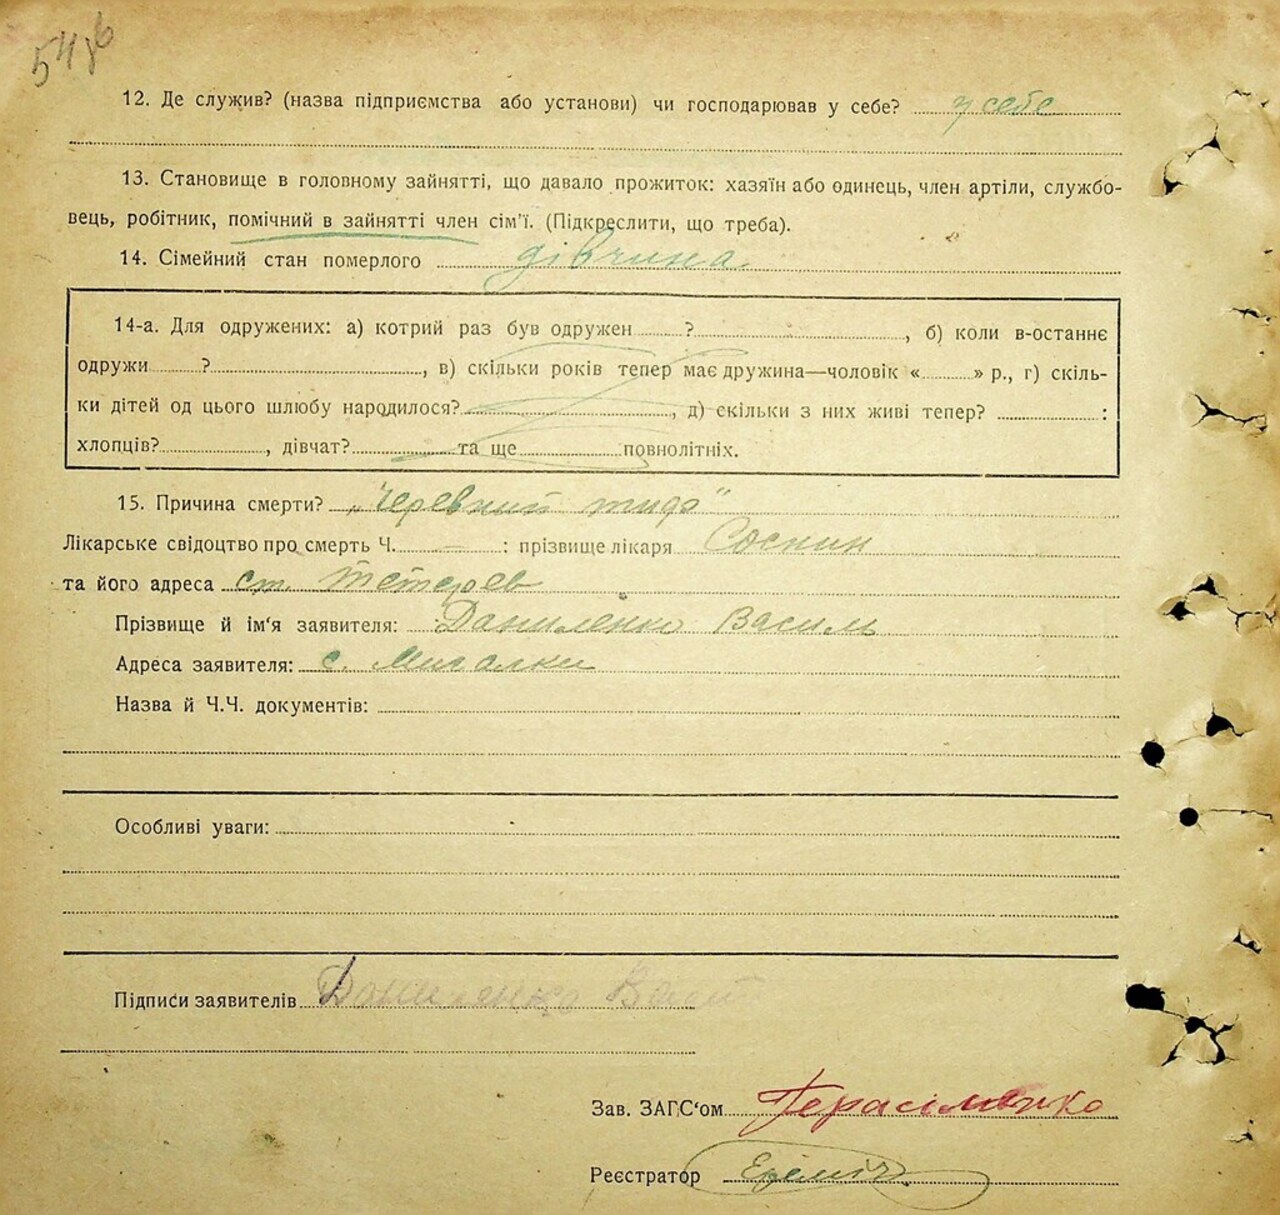 12. Де служив? (назва підприємства або установи) чи господарював у себе? у себе
13. Становище в головному зайнятті, що давало прожиток: хазяїн або одинець, член артіли, службо-
вець, робітник, помічний в зайнятті член сім'ї. (Підкреслити, що треба).
14. Сімейний стан померлого дівчина
14-а. Для одружених: а) котрий раз був одружен ? , б) коли в-останнє
одружи ? , в) скільки років тепер має дружина—чоловік « » р., г) скіль-
ки дітей од цього шлюбу народилося? , д) скільки з них живі тепер? :
хлопців? , дівчат? та ще повнолітніх.
15. Причина смерти? „Черевний тиф"
Лікарське свідоцтво про смерть Ч. — : прізвище лікаря Соснин
та його адреса ст. Тетерев
Прізвище й ім'я заявителя: Даниленко Василь
Адреса заявителя: с. Мигалки
Назва й Ч.Ч. документів:
Особливі уваги:
Підписи заявителів Даниленко
Зав. ЗАГС'ом Герасіменко
Реєстратор